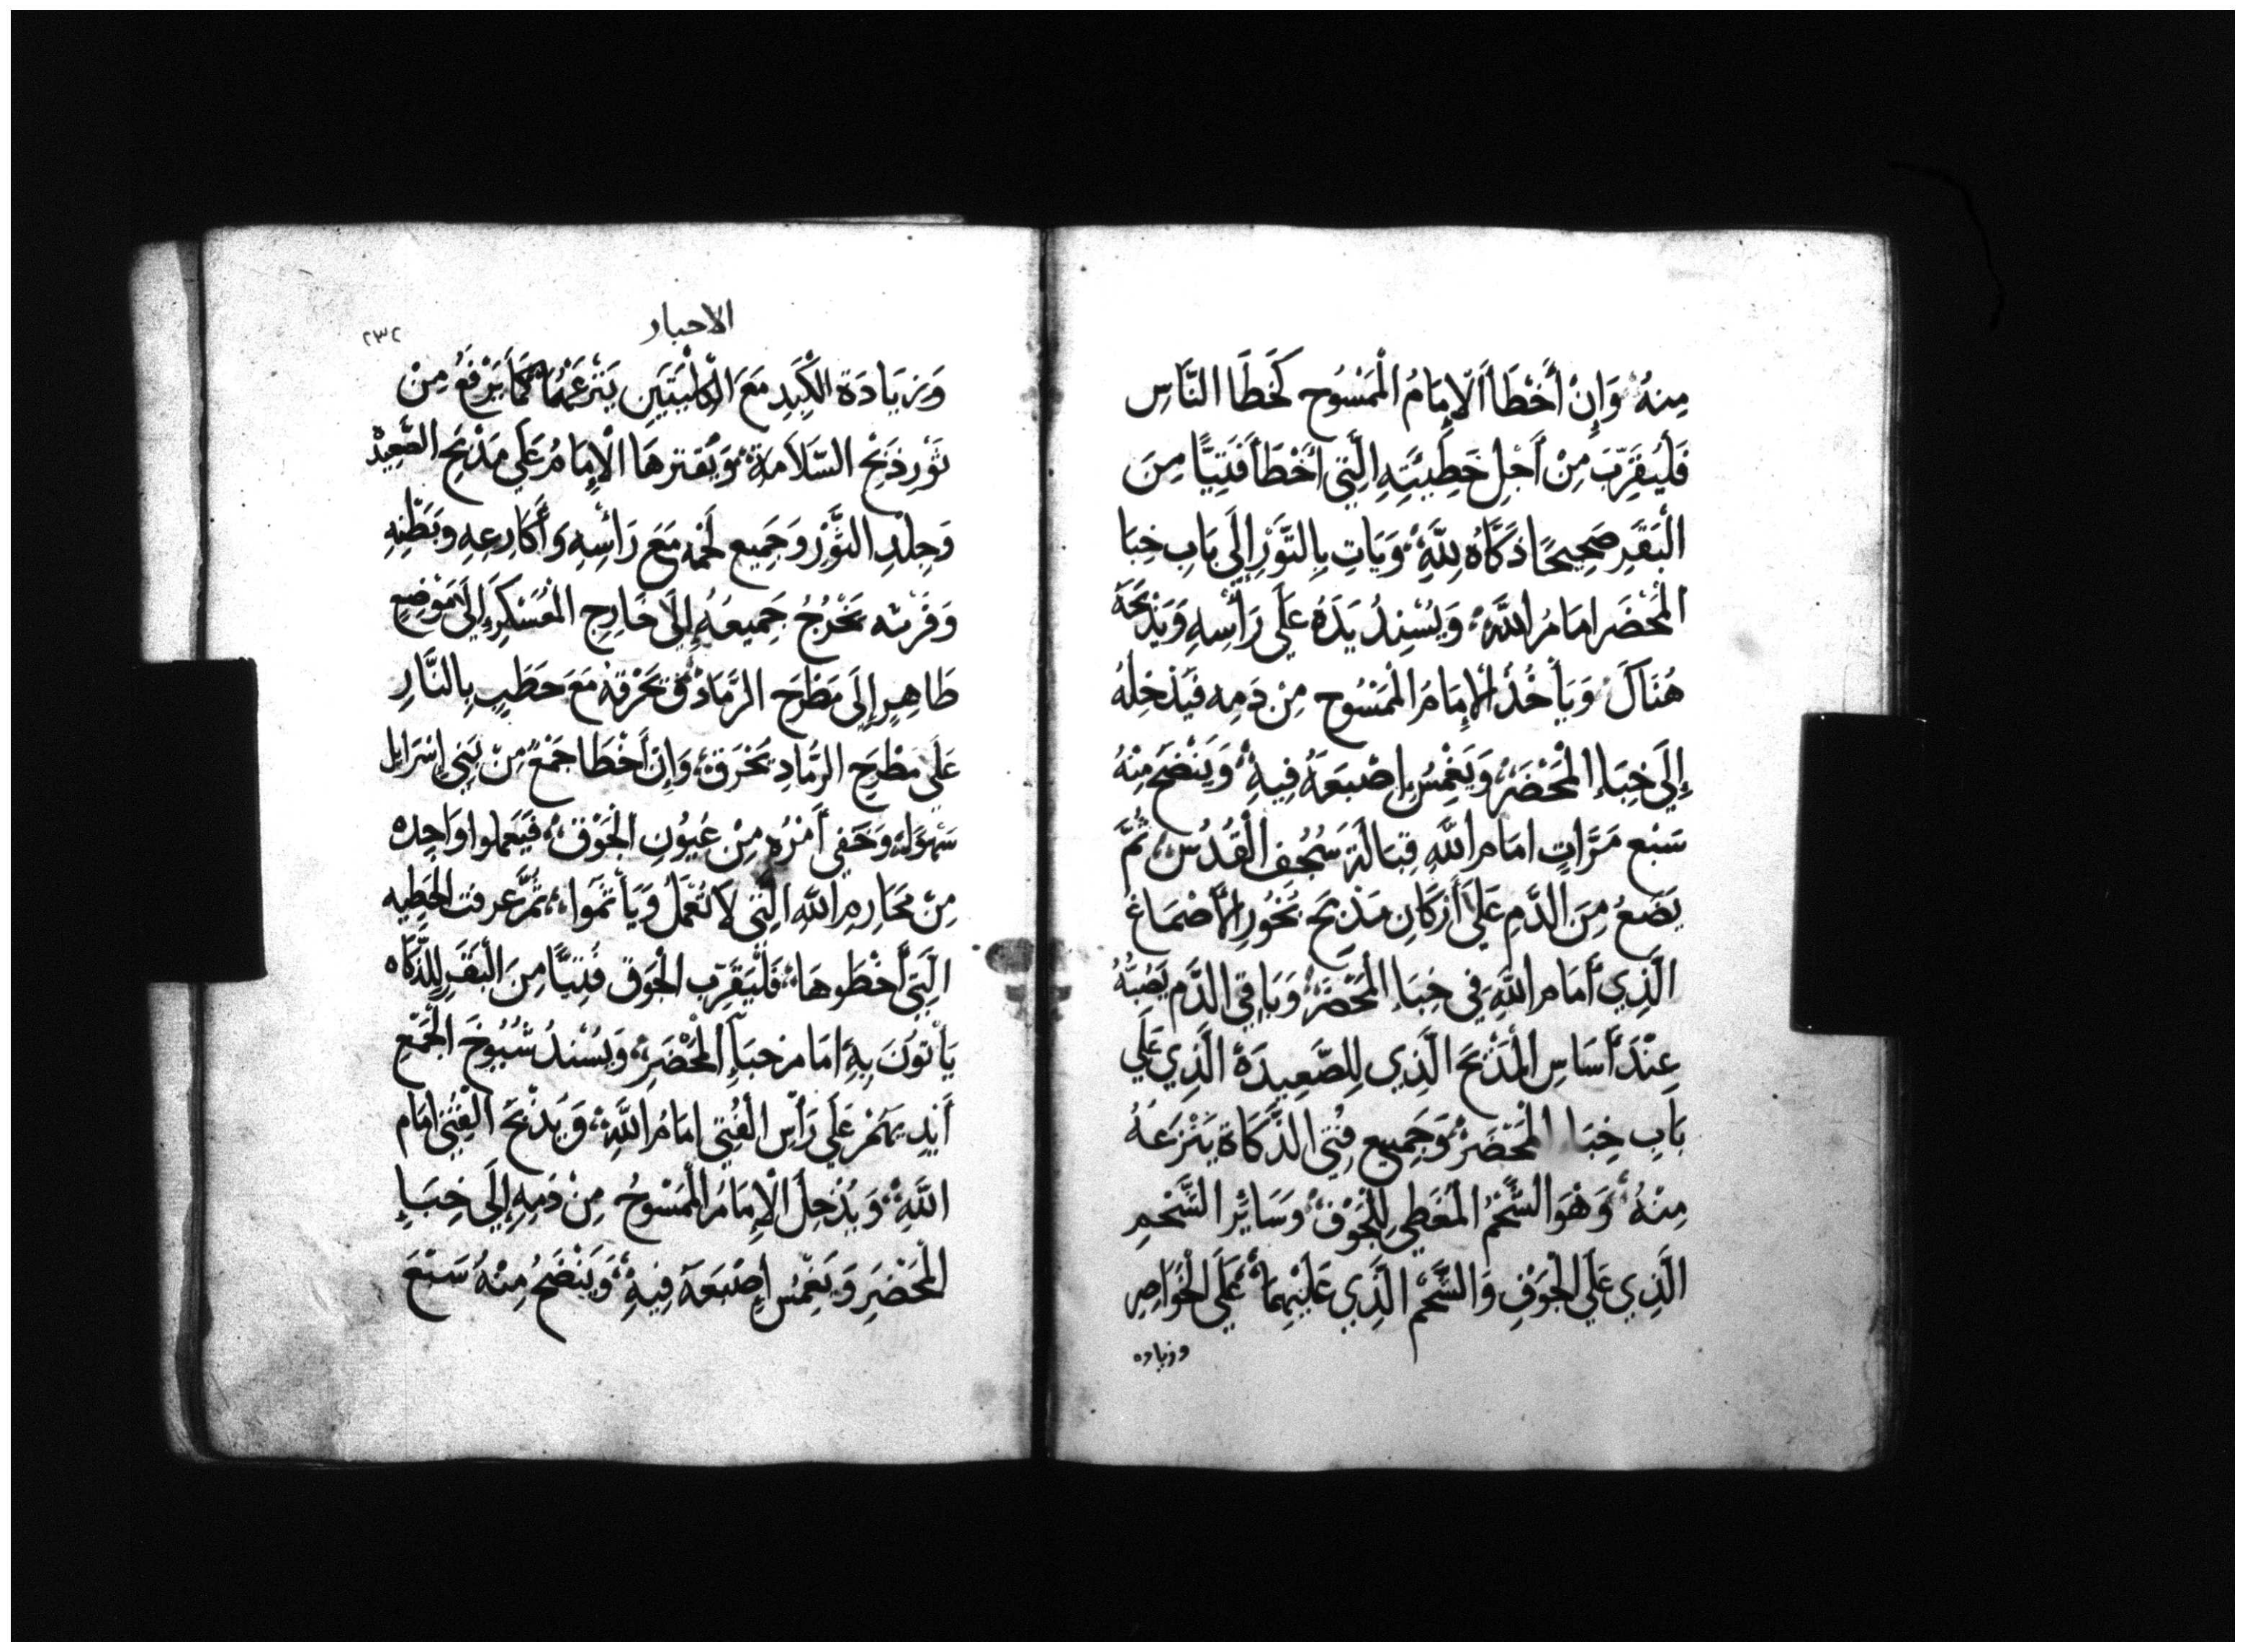 مِنهُ وَإِنْ أَخْطَأَ الإِمَامُ الْمَمْسُوح كَخَطَا النَّاسِ
فَلْيُقَرِّبَ مِنْ أَجْلِ خَطِيئَتِهِ الَّتِي أَخْطَأَ فَتِيًّا مِنَ
الْبَقَرِ صَحِيحًا ذَكَاُه لِلَّهِ وَيَاتِ بِالثَّوْرِ إِلَى بَابِ خِبَا
الْمَحْضَرِ امَامُ اللَّهِ وَيُسْنِدُ يَدَهُ عَلَى رَأْسِهِ وَيَذْبَحَهُ
هُنَاكَ وَيَأْخُذُ الإِمَامُ الْمَمْسُوح مِنْ دَمِه فَيَدْخِلُهُ
إِلَى خِبَاءِ الْمَحْضَرِ وَيَغْمِسُ إِصْبَعَهُ فِيهِ وَيَنْضَحَ مِنْهُ
سَبْع مَرَّاتٍ امَامَ اللَّهِ قِبَالَة سُجُفِ الْقُدُسِ ثُمَّ
يَضَعُ مِنَ الدَّمِ عَلَى أَرْكَانِ مَذْبَحَ بَخُورِ الأَصْمَاغ
الَّذِي أَمَام اللَّهِ فِي خِبَاءِ الْمَحْضَرِ وَبَاقِي الدَّم يَصُبُّهُ
عِنْدَ أَسَاسِ الْمَذْبَحَ الَّذِي لِلصَّعِيدَةِ الَّذِي عَلَى
بَابِ خِبَاء الْمَحْضَرِ وَجَمِيع فِتِي الذَّكَاة يَنْزَعَهُ
مِنْهُ وَهْوَ الشَّحْمُ الْمُغَطِي لِلْجَوْفِ وَسَائِر الشَّحْمِ
الَّذِي عَلَى الْجَوْفِ وَالشَّحْمُ الَّذِي عَلَيْهِمَا عَلَى الْخَوَاصِر
وزياده
الاحبار
٢٣٢
وَزِيَادَة الْكَبِدِ مَعَ الْكُلْيَتَيْنِ يَنْزَعْهُمَا كَمَا يَرْفَعُ مِنْ
ثَوْرِ ذَبْحِ السَّلاَمة وَيُقترهَا الإِمَامُ عَلَى مَذْبَحِ الصَّعِيدْ
وَجِلْدِ الثَّوْرِ وَجَمِيع لَحْمه مَعَ رَأْسِهِ وَأَكَارِعِهِ وَبَطْنِهِ
وَفَرْثه يَخْرُجُ جَمِيعُهُ إِلَى خَارِجِ الْعَسْكَرِ إِلَى مَوْضِعٍ
طَاهِرٍ إِلَى مَطْرَحِ الرَّمَادْ وَتَحْرُقهُ مَعَ حَطَبٍ بِالنَّارِ
عَلَى مَطْرَحِ الرَّمَادِ يُحْرَقْ وَإِنْ أَخْطَا جَمْعٌ مِنْ بَنِي إِسْرَايل
سَهْوًا لَهُ وَخَفِي أَمْرُه مِنْ عُيُونِ الْجَوْقِ فَيَعملوا وَاحِده
مِنْ مَحَارِمِ اللَّهِ الَّتِي لاَ تُعْمَلُ وَيَأْثَمُوا ثُمَّ عرفت الْخَطِيه
الَّتِي أَخْطَوهَا فَلْيُقَرِّب الْجَوق فَتِيًّا مِنَ الْبَقَرِ لِلذَّكَاه
يَأْتُونَ بِهِ امَام خِبَاءِ الْمَحْضَرِ وَيُسْنِدُ شُيُوخَ الْجَمْعِ
أَيْدِيَهُمْ عَلَى رَأْسِ الْفَتِي امَامُ اللَّهِ وَيَذْبَحَ الْفَتِي امَام
اللَّهِ وَيُدْخِلُ الإِمَامُ الْمَمْسُوحُ مِنْ دَمِهِ إِلَى خِبَاءِ
الْمَحْضَرِ وَيَغْمِسُ إِصْبَعَهُ فِيهِ وَيَنْضَحُ مِنْهُ سَبْعَ